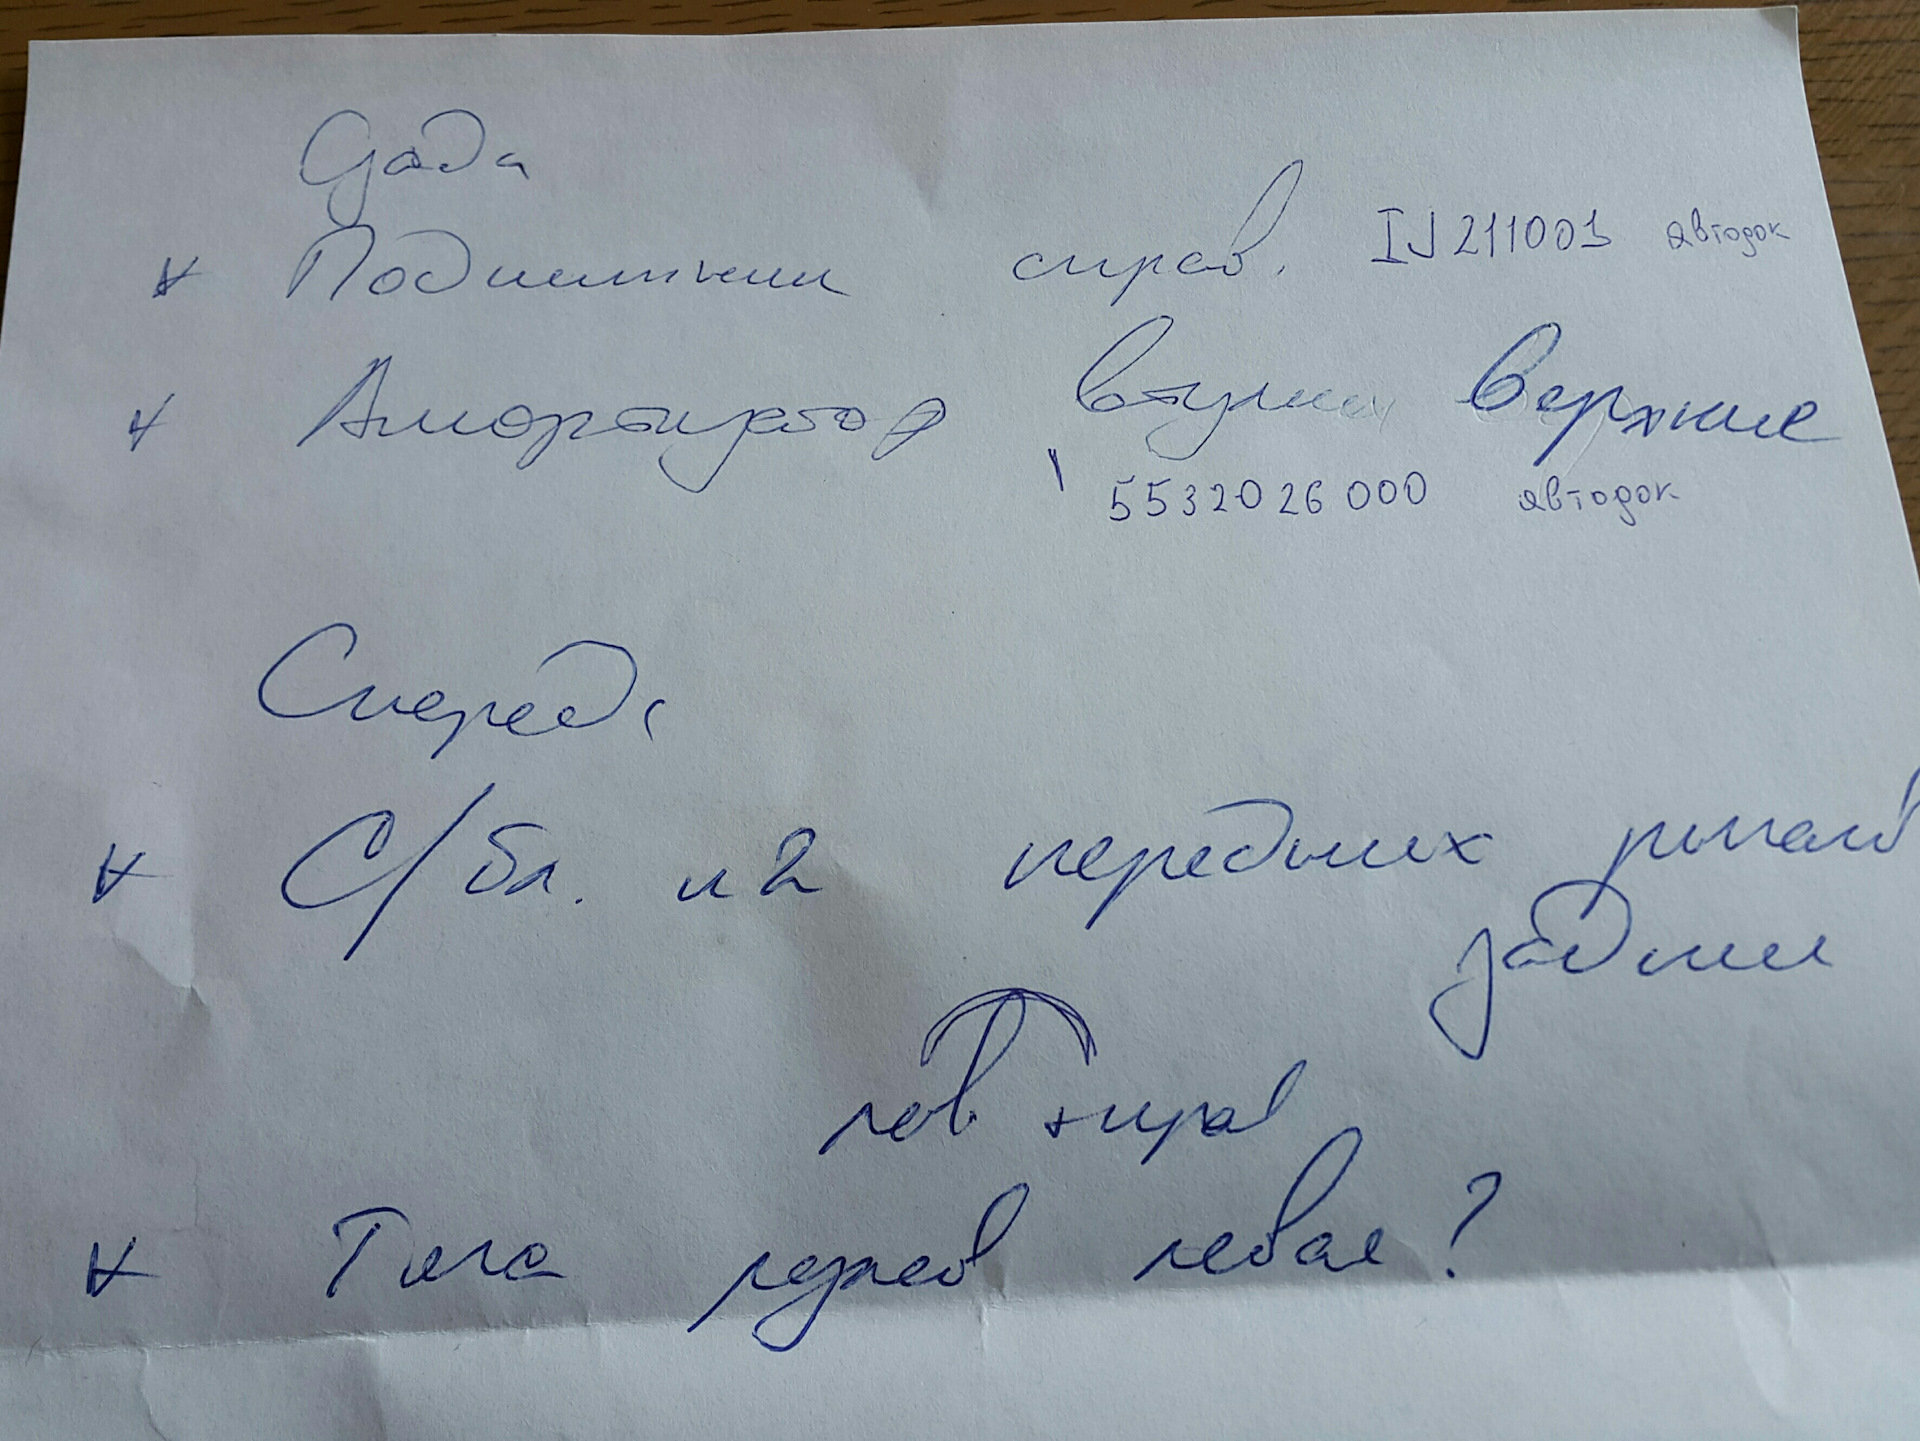 Сзади
* Подшипник справ. IJ211001 автодок
* Амортизатор втулки верхние
5532026000 автодок
Спереди
* С/бл. на передних рычагов
задний
лев + прав
* Тяга рулев левая?